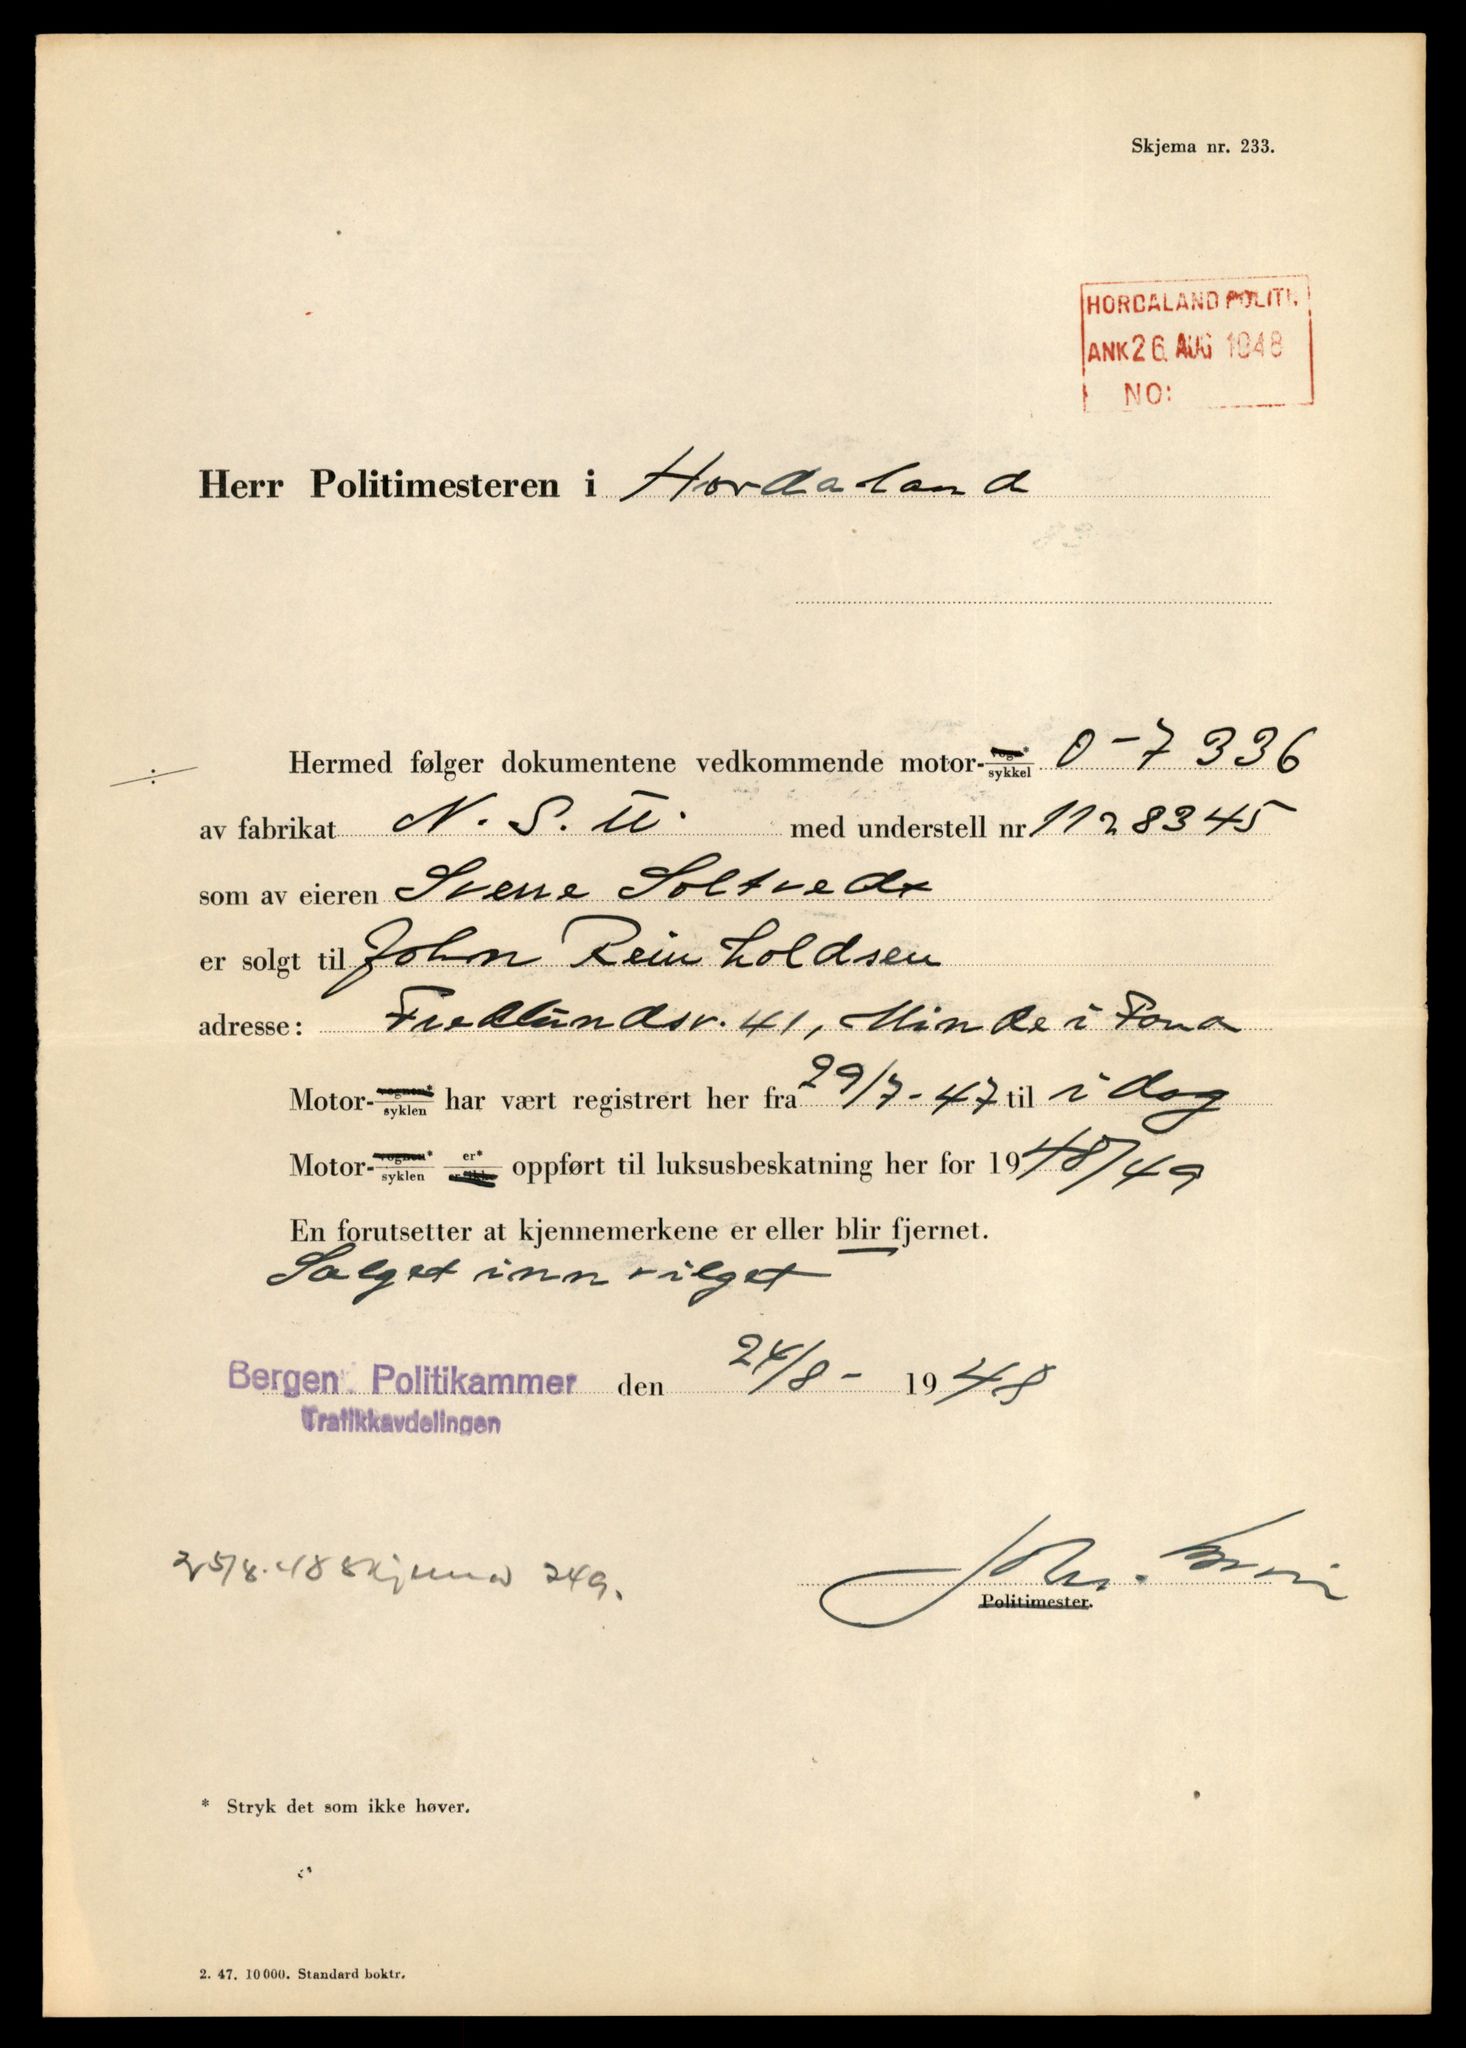 Skjema nr. 233.
HORDALAND POLITI.
ANK 26 AUG 1948
NO:
Herr Politimesteren i Hordaland
Hermed følger dokumentene vedkommende motor-vogn* sykkel O-7336
av fabrikat N.S.U. med understell nr 1128345
som av eieren Sverre Soltvedt
er solgt til John Reinholdsen
adresse: Fredlundsv. 41, Minde i Fana
Motor-vognen* syklen har vært registrert her fra 29/7-47 til i dag
Motor-vognen* syklen er* er ikke oppført til luksusbeskatning her for 1948/49
En forutsetter at kjennemerkene er eller blir fjernet.
Salget innvilget
Bergen Politikammer den 24/8- 1948
Trafikkavdelingen
25/8.48 skjema 249.
Politimester.
* Stryk det som ikke høver.
2. 47. 10000. Standard boktr.